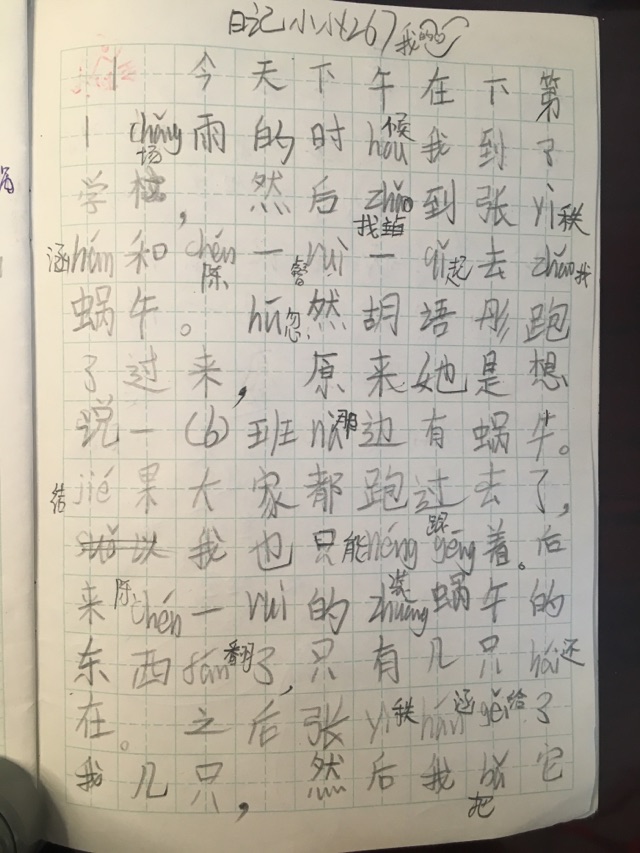 日记 小小(267) 我的
今天下午在下第
1 chǎng 场 雨的时 hòu 候 我到了
学校，然后 zhǎo 找 到张 yì 秩
hán 涵 和 chén 陈 一 ruì 睿 一 qǐ 起 去 zhǎo 找
蜗牛。hū 忽 然胡语彤跑
了过来，原来她是想
说一(6)班 nà 那 边有蜗牛。
jié 结 果大家都跑过去了，
以我也只 néng 能 gēng 跟 着。后
来 chén 陈 一 ruì 的 zhuāng 装 蜗牛的
东西 fān 翻 了，只有几只 hái 还
在。之后张 yì 秩 hán 涵 gěi 给 了
我几只，然后我 bǎ 把 它